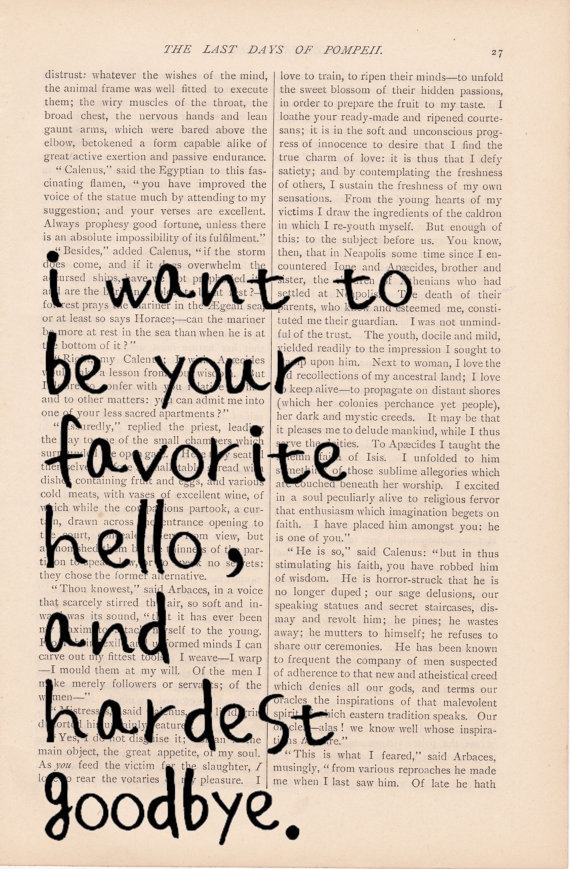 THE LAST DAYS OF POMPEII.
27
distrust: whatever the wishes of the mind,
the animal frame was well fitted to execute
them; the wiry muscles of the throat, the
broad chest, the nervous hands and lean
gaunt arms, which were bared above the
elbow, betokened a form capable alike of
great active exertion and passive endurance.
“Calenus,” said the Egyptian to this fas-
cinating flamen, “you have improved the
voice of the statue much by attending to my
suggestion; and your verses are excellent.
Always prophesy good fortune, unless there
is an absolute impossibility of its fulfilment.”
“Besides,” added Calenus, “if the storm
does come, and if it does overwhelm the
are the
forest prays the mariner in the Ægean sea,
or at least so says Horace;—can the mariner
be more at rest in the sea than when he is at
the bottom of it?”
my
a lesson from
confer with
and to other matters: you can admit me into
one of your less sacred apartments?”
replied the priest, leading
the way to one of the small chambers which
dishes containing fruit and eggs, and various
cold meats, with vases of excellent wine, of
which while the companions partook, a cur-
tain, drawn across the entrance opening to
view, but
they chose the former alternative.
“Thou knowest,” said Arbaces, in a voice
that scarcely stirred the air, so soft and in-
was its sound, “that it has ever been
my maxim to attach myself to the young.
minds I can
carve out my fittest tools. I weave—I warp
—I mould them at my will. Of the men I
make merely followers or servants; of the
women—”
said
“Yes, I do not disguise it; woman is the
main object, the great appetite, of my soul.
As you feed the victim for the slaughter, I
love to rear the votaries of my pleasure. I
love to train, to ripen their minds—to unfold
the sweet blossom of their hidden passions,
in order to prepare the fruit to my taste. I
loathe your ready-made and ripened courte-
sans; it is in the soft and unconscious prog-
ress of innocence to desire that I find the
true charm of love: it is thus that I defy
satiety; and by contemplating the freshness
of others, I sustain the freshness of my own
sensations. From the young hearts of my
victims I draw the ingredients of the caldron
in which I re-youth myself. But enough of
this: to the subject before us. You know,
then, that in Neapolis some time since I en-
countered Ione and Apæcides, brother and
sister, the children of Athenians who had
settled at Neapolis. The death of their
parents, who knew and esteemed me, consti-
tuted me their guardian. I was not unmind-
ful of the trust. The youth, docile and mild,
yielded readily to the impression I sought to
stamp upon him. Next to woman, I love the
old recollections of my ancestral land; I love
to keep alive—to propagate on distant shores
(which her colonies perchance yet people),
her dark and mystic creeds. It may be that
it pleases me to delude mankind, while I thus
serve the deities. To Apæcides I taught the
of Isis. I unfolded to him
those sublime allegories which
are couched beneath her worship. I excited
in a soul peculiarly alive to religious fervor
that enthusiasm which imagination begets on
faith. I have placed him amongst you: he
is one of you.”
“He is so,” said Calenus: “but in thus
stimulating his faith, you have robbed him
of wisdom. He is horror-struck that he is
no longer duped; our sage delusions, our
speaking statues and secret staircases, dis-
may and revolt him; he pines; he wastes
away; he mutters to himself; he refuses to
share our ceremonies. He has been known
to frequent the company of men suspected
of adherence to that new and atheistical creed
which denies all our gods, and terms our
oracles the inspirations of that malevolent
spirit of which eastern tradition speaks. Our
alas! we know well whose inspira-
“This is what I feared,” said Arbaces,
musingly, “from various reproaches he made
me when I last saw him. Of late he hath
i want to
be your
favorite
hello,
and
hardest
goodbye.